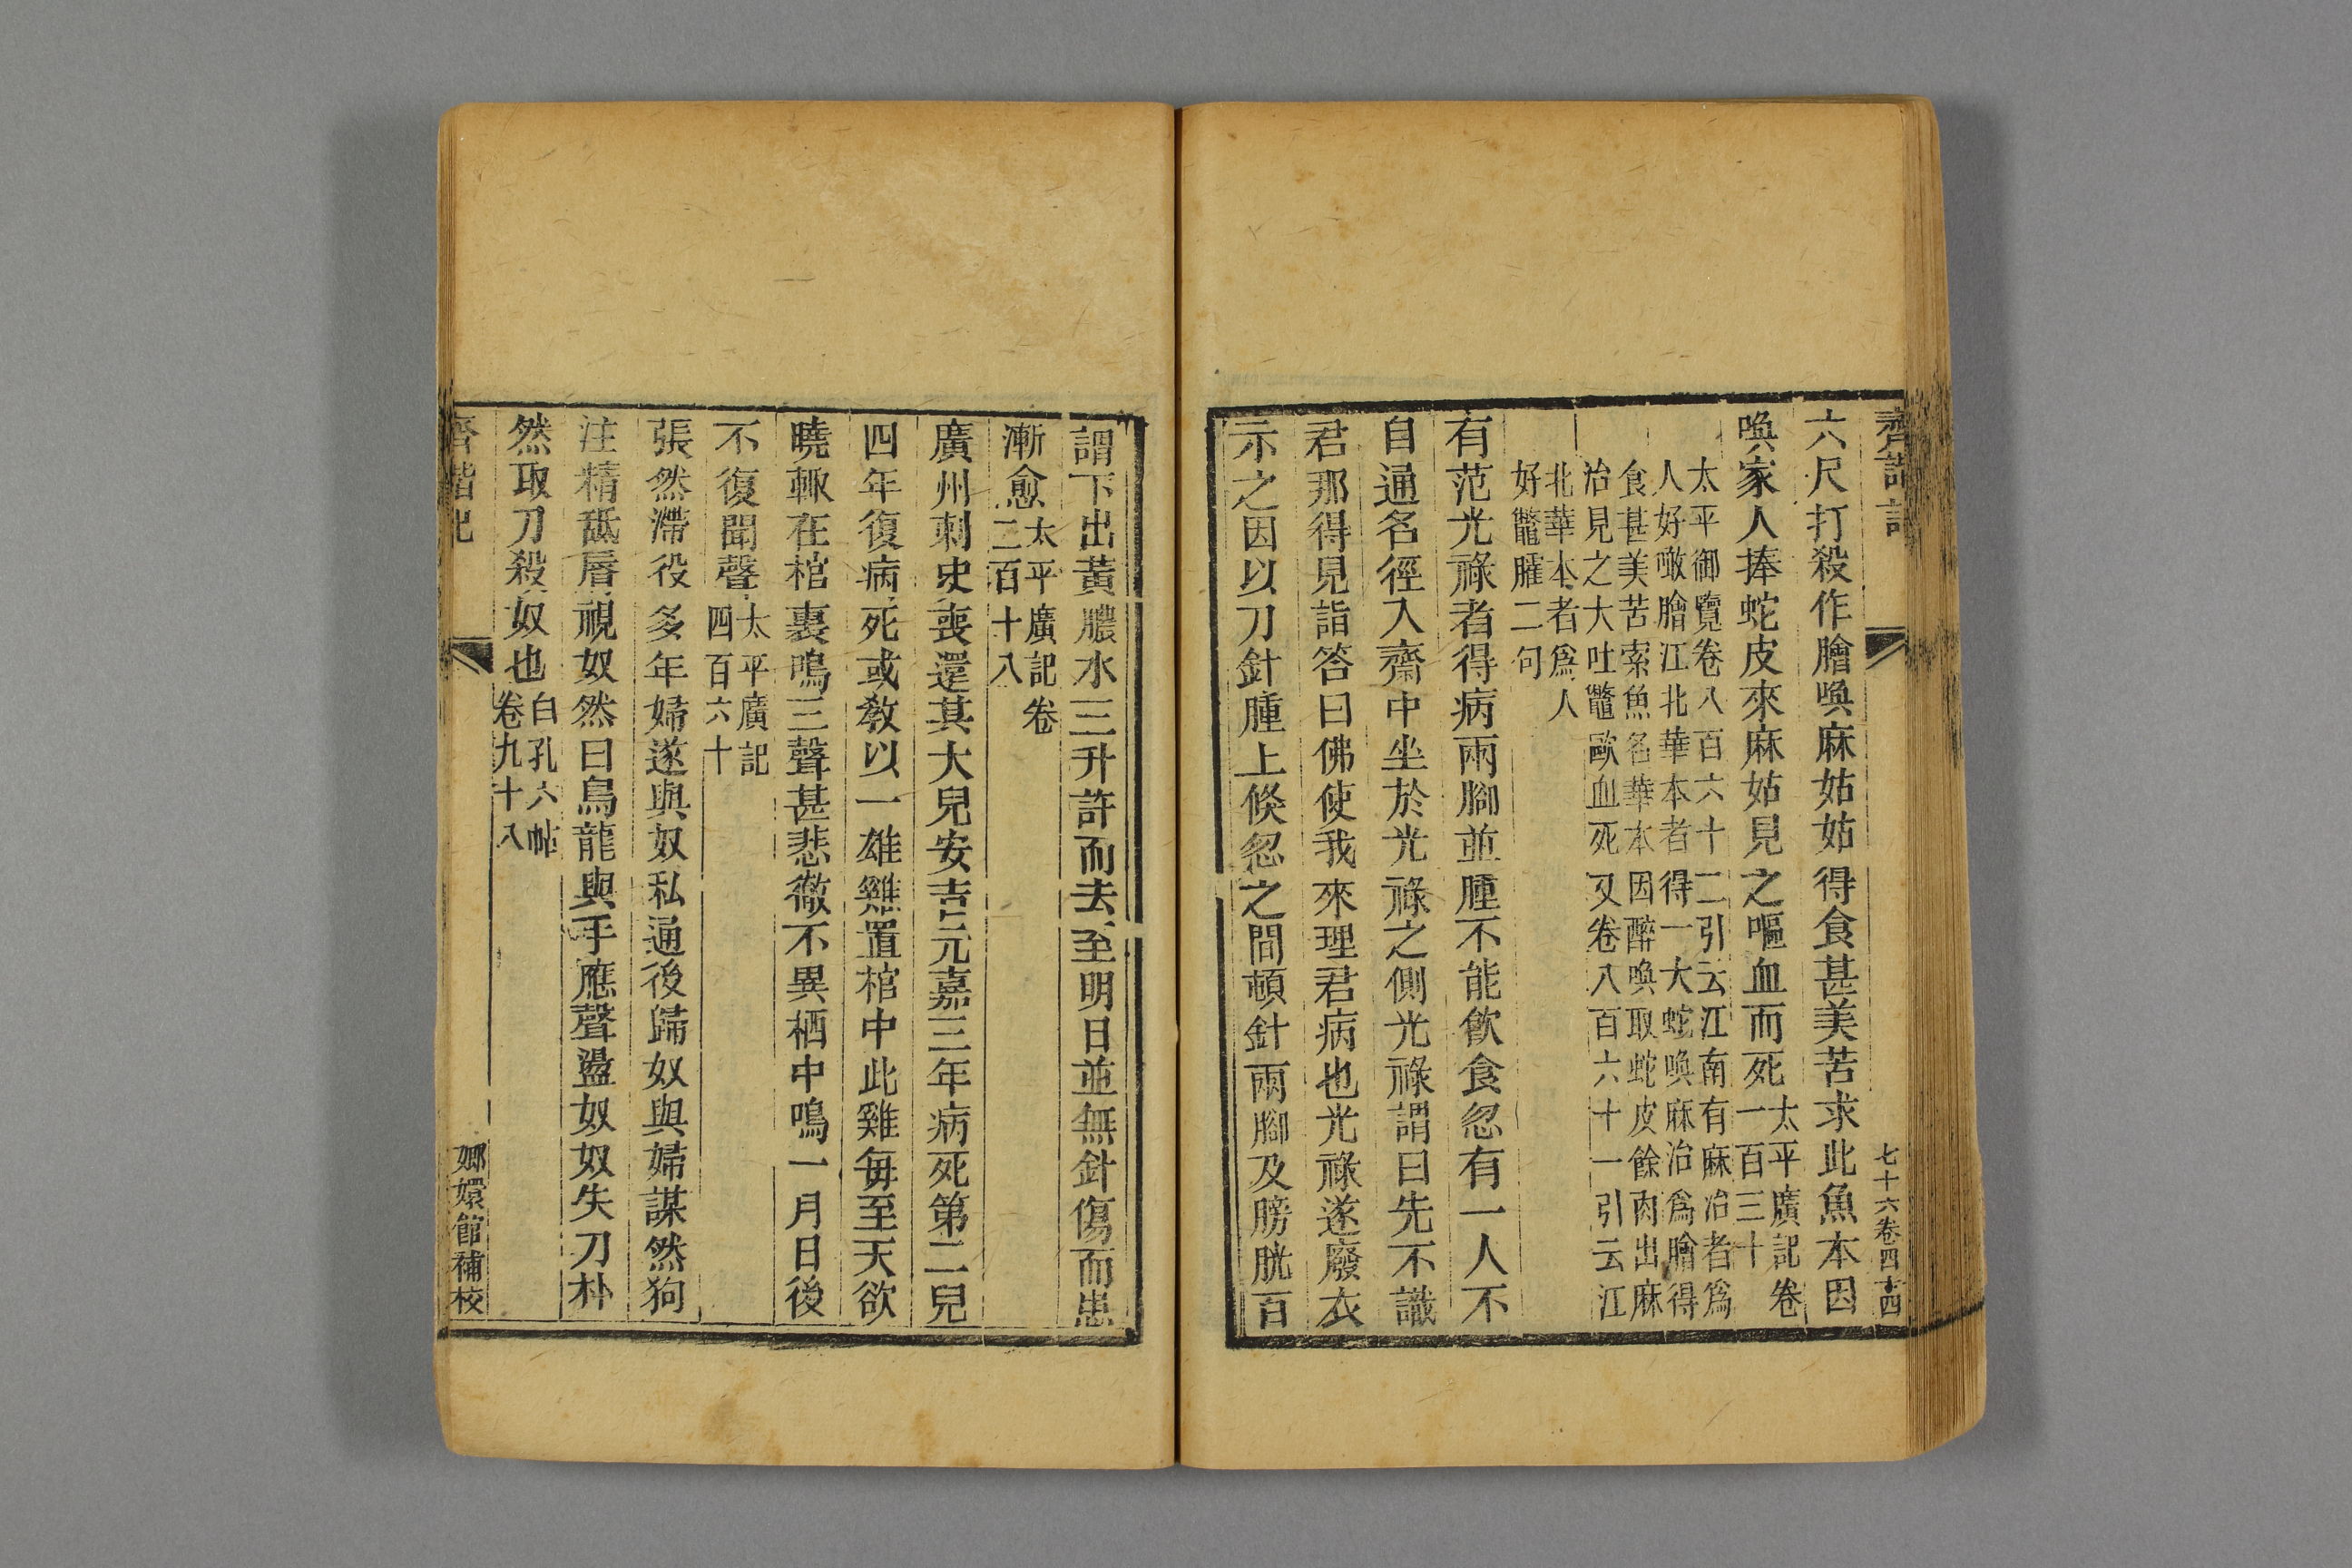 齊諧記
七十六卷四十四
六尺打殺作膾喚麻姑姑得食甚美苦求此魚本因
喚家人捧蛇皮來麻姑見之嘔血而死太平廣記卷
一百三十
太平御覽卷八百六十二引云江南有麻冶者爲
人好噉膾江北華本者得一大蛇喚麻治爲膾得
食甚美苦索魚名華本因醉喚取蛇皮餘肉出麻
治見之大吐鼈歐血死又卷八百六十一引云江
北華本者爲人
好鼈臛二句
有范光祿者得病兩腳並腫不能飲食忽有一人不
自通名徑入齋中坐於光祿之側光祿謂曰先不識
君那得見詣答曰佛使我來理君病也光祿遂廢衣
示之因以刀針腫上倏忽之間頓針兩腳及膀胱百
謂下出黃膿水三升許而去至明日並無針傷而患
漸愈太平廣記卷
二百十八
廣州刺史喪還其大兒安吉元嘉三年病死第二兒
四年復病死或敎以一雄雞置棺中此雞每至天欲
曉輒在棺裏鳴三聲甚悲徹不異栖中鳴一月日後
不復聞聲太平廣記
四百六十
張然滯役多年婦遂與奴私通後歸奴與婦謀然狗
注精舐唇視奴然曰烏龍與手應聲盪奴奴失刀朴
然取刀殺奴也白孔六帖
卷九十八
齊諧記
嫏嬛館補校